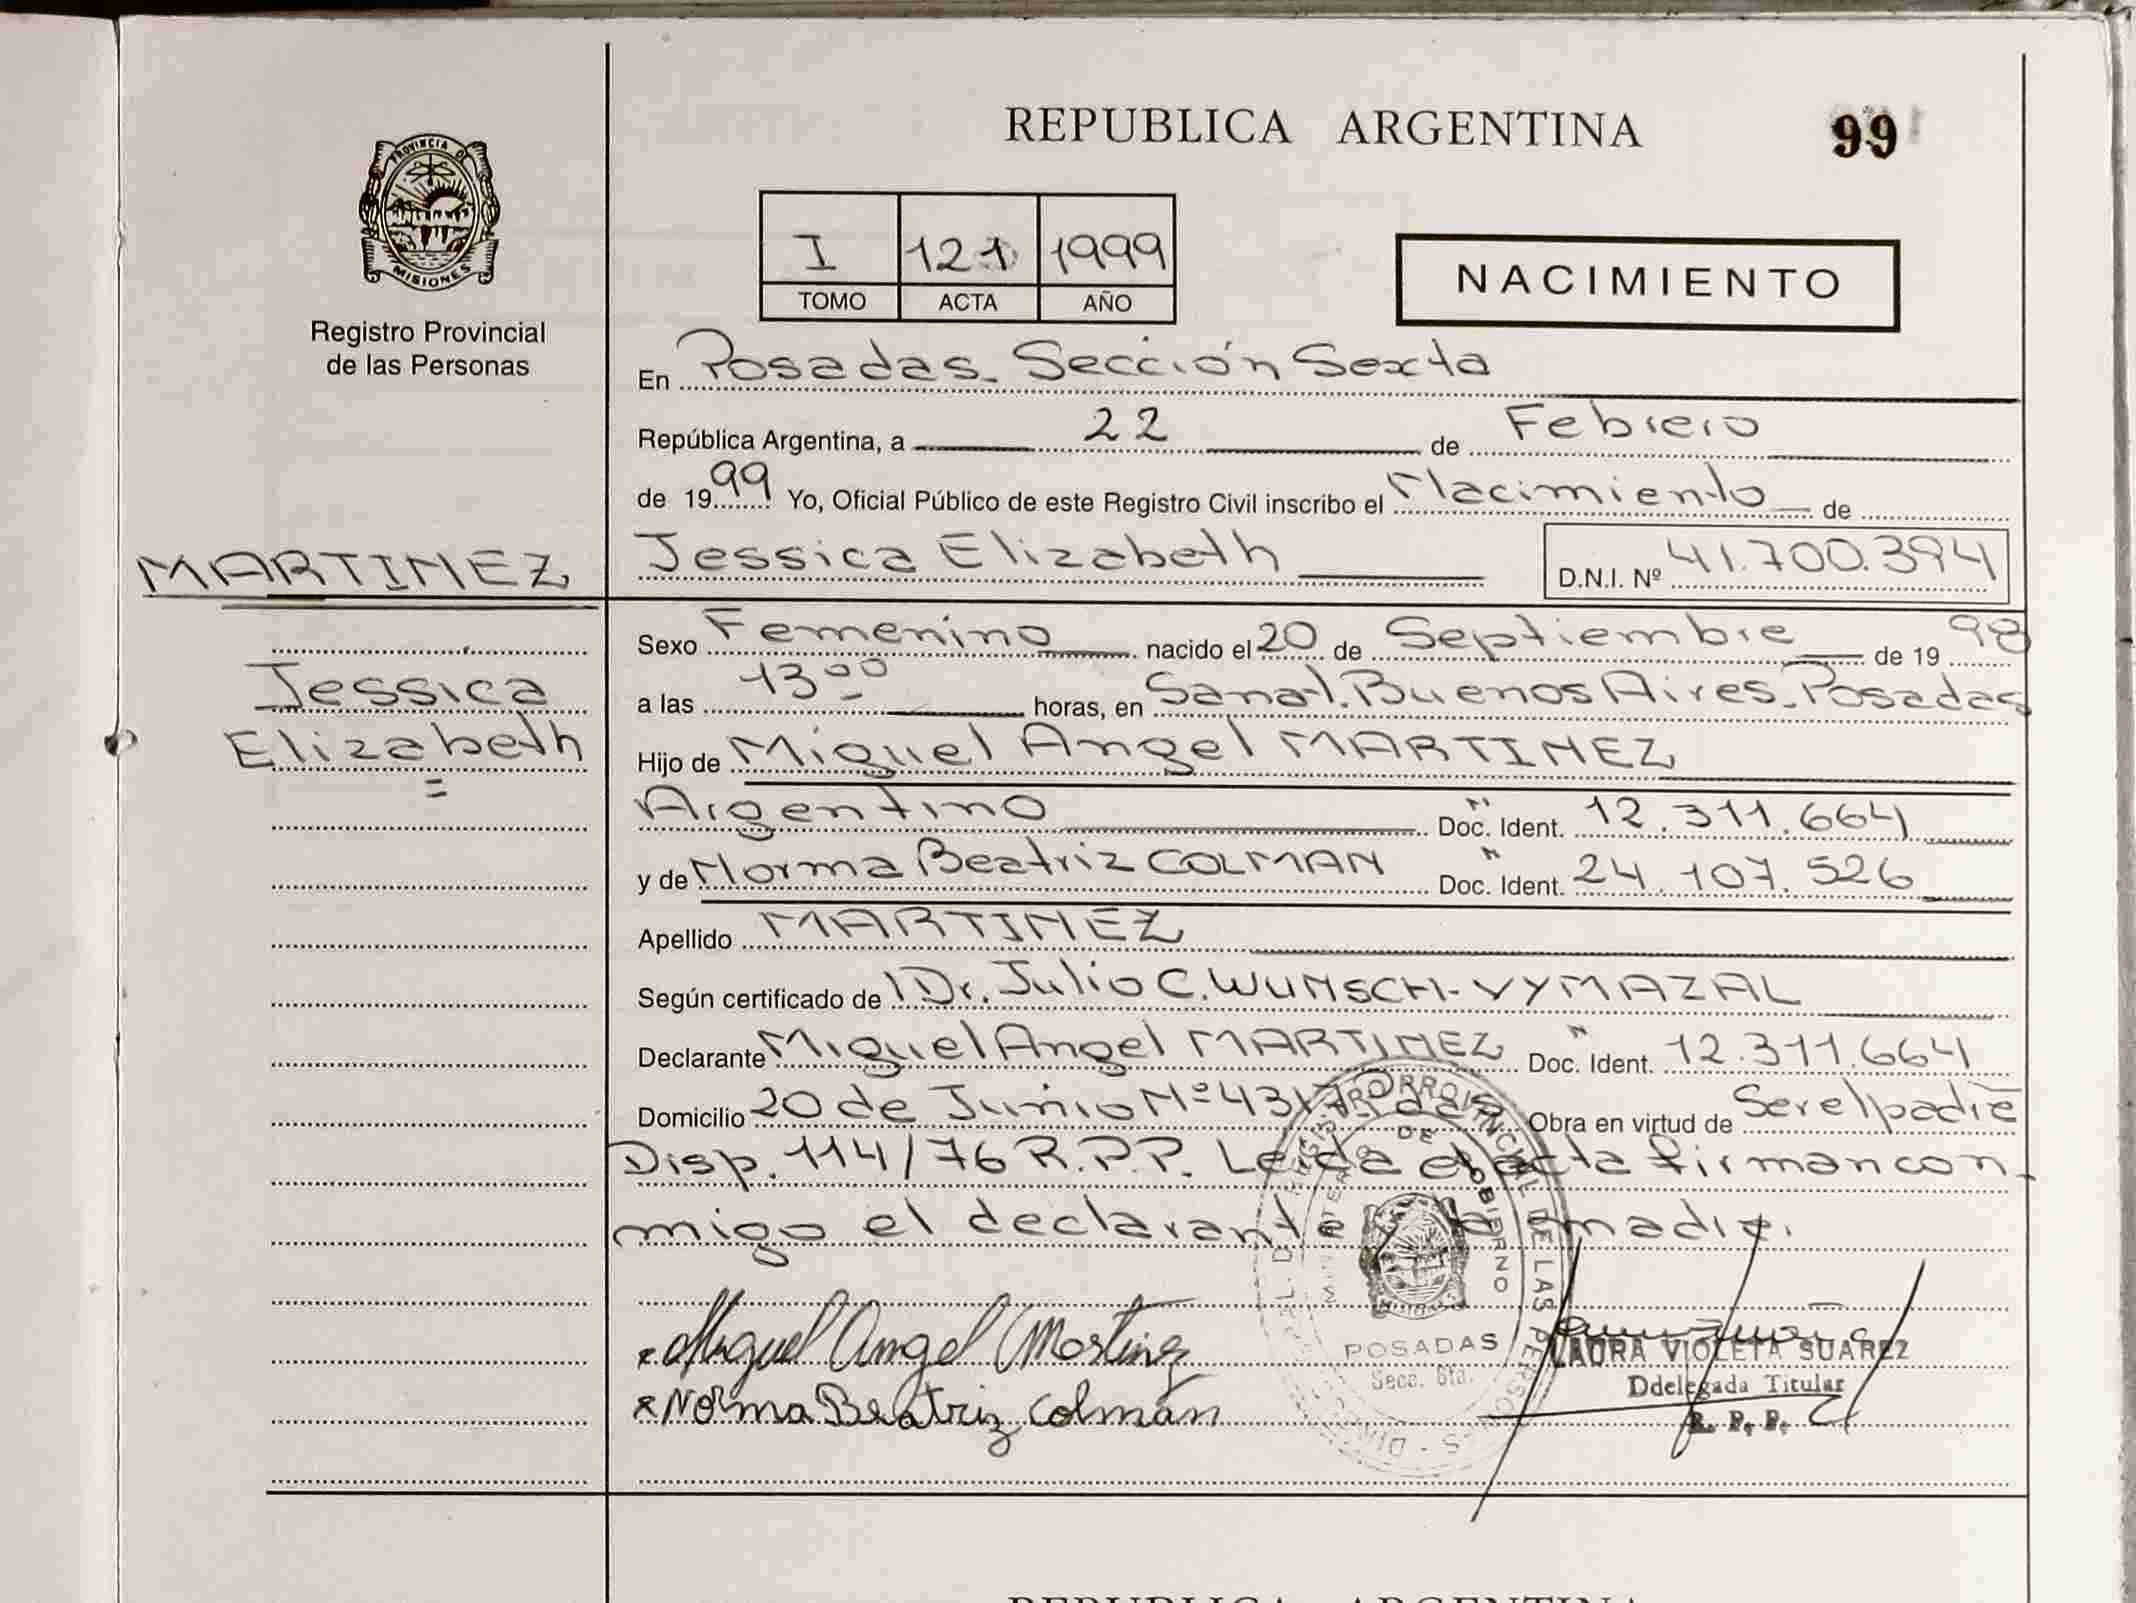 REPUBLICA ARGENTINA
99
PROVINCIA DE
MISIONES
Registro Provincial
de las Personas
I 121 1999
TOMO ACTA AÑO
NACIMIENTO
En Posadas - Sección Sexta
República Argentina, a 22 de Febrero
de 1999 Yo, Oficial Público de este Registro Civil inscribo el Nacimiento de
MARTINEZ
Jessica Elizabeth D.N.I. Nº 41.700.394
Sexo Femenino nacido el 20 de Septiembre de 1998
Jessica
Elizabeth
a las 13 00 horas, en Sanat. Buenos Aires - Posadas
Hijo de Miguel Angel MARTINEZ
Argentino Doc. Ident. 12.311.664
y de Norma Beatriz COLMAN Doc. Ident. 24.107.526
Apellido MARTINEZ
Según certificado de Dr. Julio C. WUNSCH - VYMAZAL
Declarante Miguel Angel MARTINEZ Doc. Ident. 12.311.664
Domicilio 20 de Junio Nº 4317 Obra en virtud de Ser el padre
Disp. 114/76 R.P.P. Leida el acta firman con
migo el declarante y la madre.
Miguel Angel Martinez
Norma Beatriz Colmán
POSADAS
Secc. 6ta.
LAURA VIOLETA SUAREZ
Ddelegada Titular
R. P. P.
REPUBLICA ARGENTINA